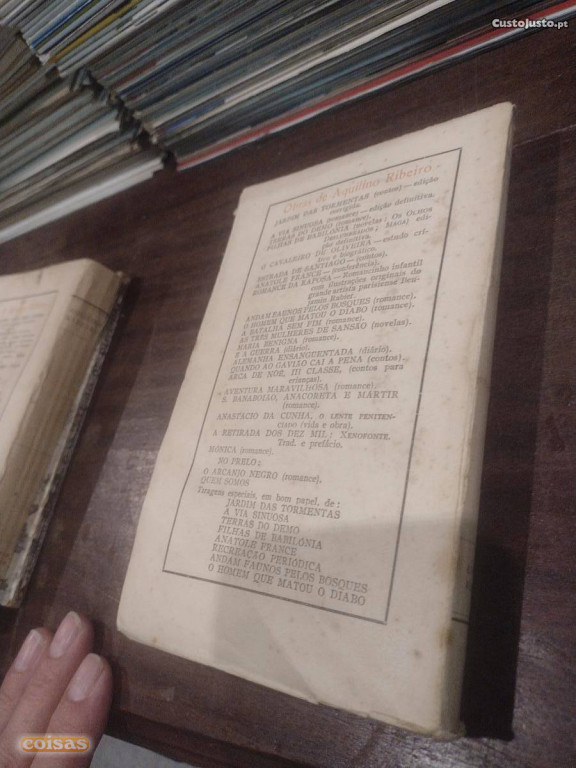 CustoJusto.pt
Obras de Aquilino Ribeiro
JARDIM DAS TORMENTAS (contos) — edição
corrigida.
A VIA SINUOSA (romance) — edição definitiva.
TERRAS DO DEMO (romance).
FILHAS DE BABILÓNIA (novelas: Os Olhos
Deslumbrados; Maga) edi-
ção definitiva.
O CAVALEIRO DE OLIVEIRA — estudo crí-
tico e biográfico.
ESTRADA DE SANTIAGO — (contos).
ANATOLE FRANCE — (conferência).
ROMANCE DA RAPOSA — Romancinho infantil
com ilustrações originais do
grande artista parisiense Ben-
jamin Rabier.
ANDAM FAUNOS PELOS BOSQUES (romance).
O HOMEM QUE MATOU O DIABO (romance).
A BATALHA SEM FIM (romance).
AS TRES MULHERES DE SANSÃO (novelas).
MARIA BENIGNA (romance).
É A GUERRA (diário).
ALEMANHA ENSANGUENTADA (diário).
QUANDO AO GAVIÃO CAI A PENA (contos).
ARCA DE NOÉ, III CLASSE, (contos para
crianças).
AVENTURA MARAVILHOSA (romance).
S. BANABOIÃO, ANACORETA E MARTIR
(romance).
ANASTÁCIO DA CUNHA, O LENTE PENITEN-
CIADO (vida e obra).
A RETIRADA DOS DEZ MIL: Xenofonte.
Trad. e prefácio.
MÓNICA (romance).
NO PRELO:
O ARCANJO NEGRO (romance).
QUEM SOMOS
Tiragens especiais, em bom papel, de:
JARDIM DAS TORMENTAS
A VIA SINUOSA
TERRAS DO DEMO
FILHAS DE BABILÓNIA
ANATOLE FRANCE
RECREAÇÃO PERIÓDICA
ANDAM FAUNOS PELOS BOSQUES
O HOMEM QUE MATOU O DIABO
coisas